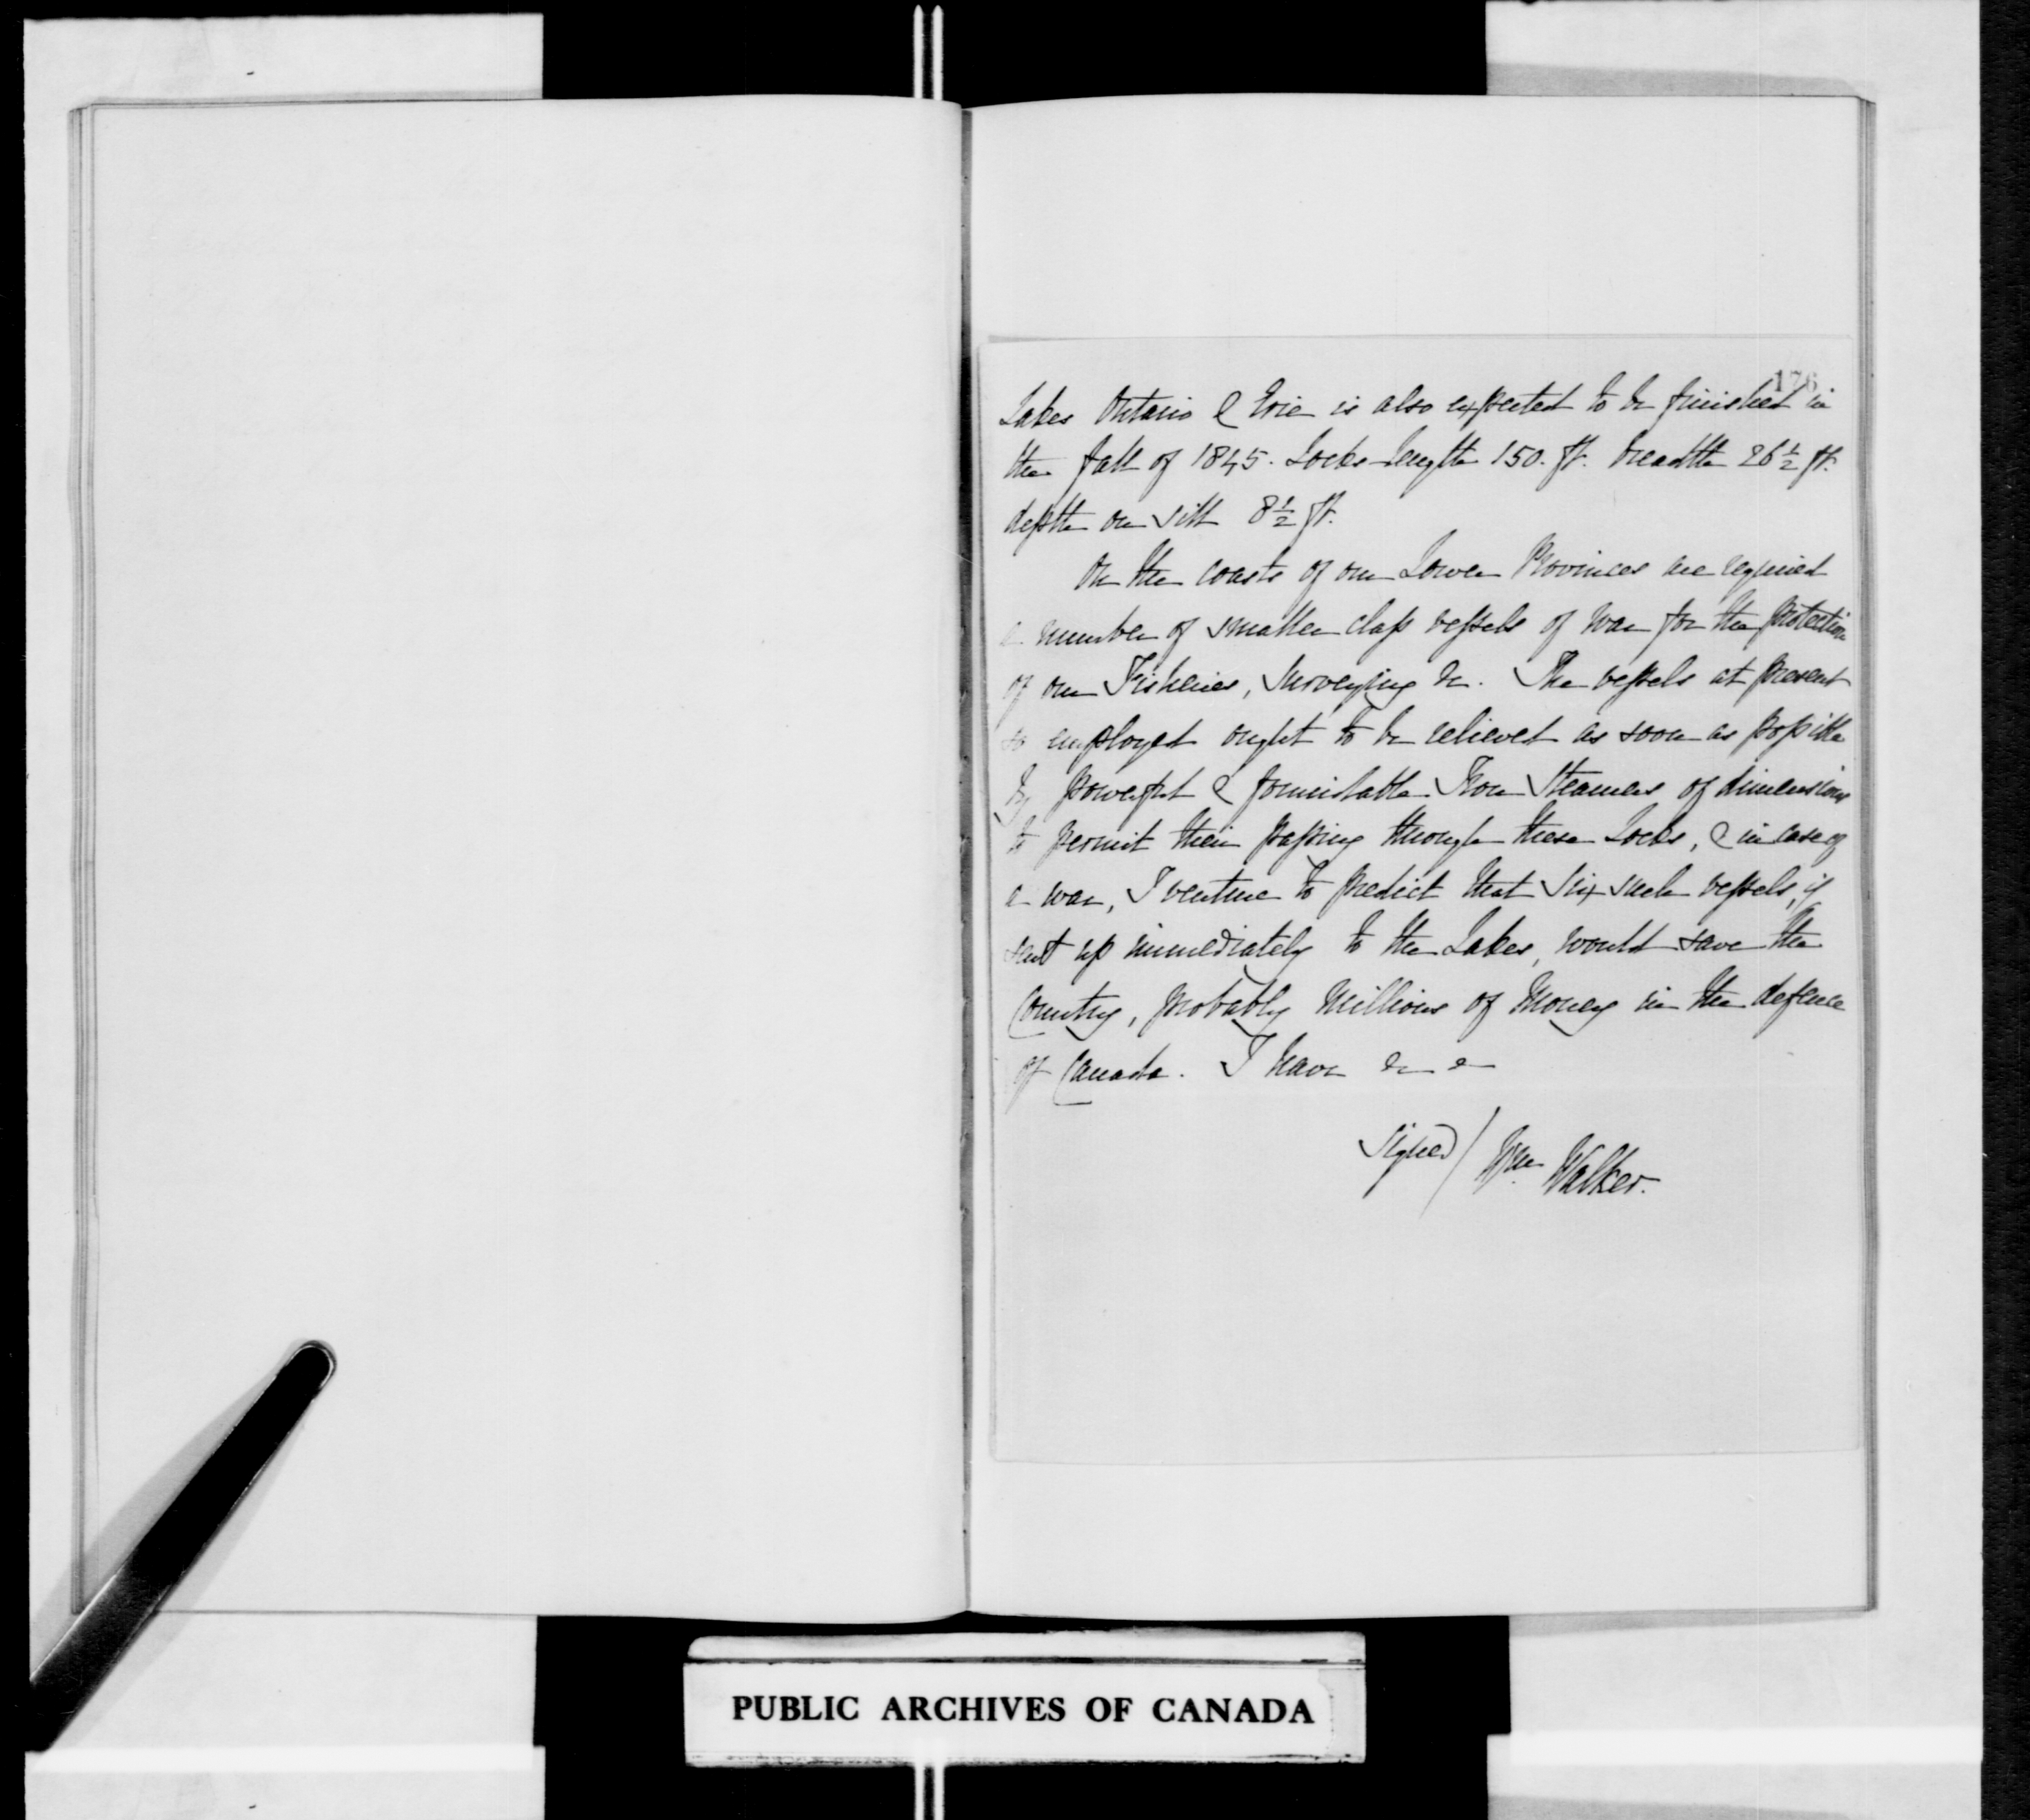 176
Lakes Ontario & Erie is also expected to be finished in
the fall of 1845. Locks length 150. ft. breadth 26½ ft.
depth on sill 8½ ft.
On the coasts of our Lower Provinces are required
a number of smaller class vessels of war for the protection
of our Fisheries, surveying &c. The vessels at present
so employed ought to be relieved as soon as possible
by powerful & formidable Iron Steamers of dimensions
to permit their passing through these Locks, & in case of
a war, I venture to predict that six such vessels, if
sent up immediately to the Lakes, would save the
Country, probably Millions of Money in the defence
of Canada. I have &c &c
Signed / Wm Walker.
PUBLIC ARCHIVES OF CANADA